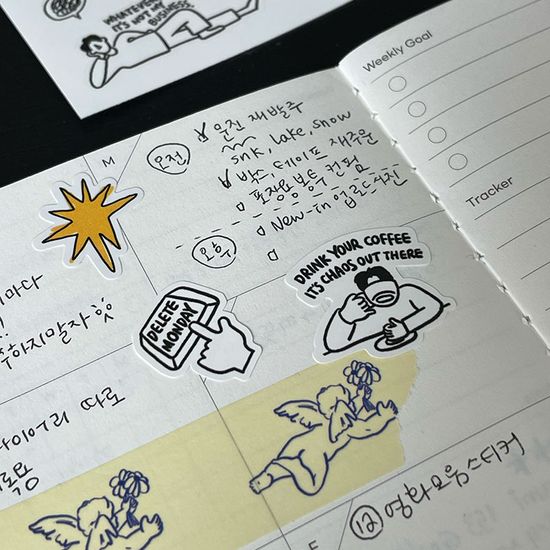 WHATEVER
IT'S NOT MY
BUSINESS
Weekly Goal
Tracker
M
오전
운진 재발주
snk, lake, snow
박스, 테이프 채주문
포장용봉투 컨펌
오후
New-in 업로드사진
DRINK YOUR COFFEE
IT'S CHAOS OUT THERE
DELETE
MONDAY
마다
하지말자
다이어리 따로
F
⑫ 영화모음스티커